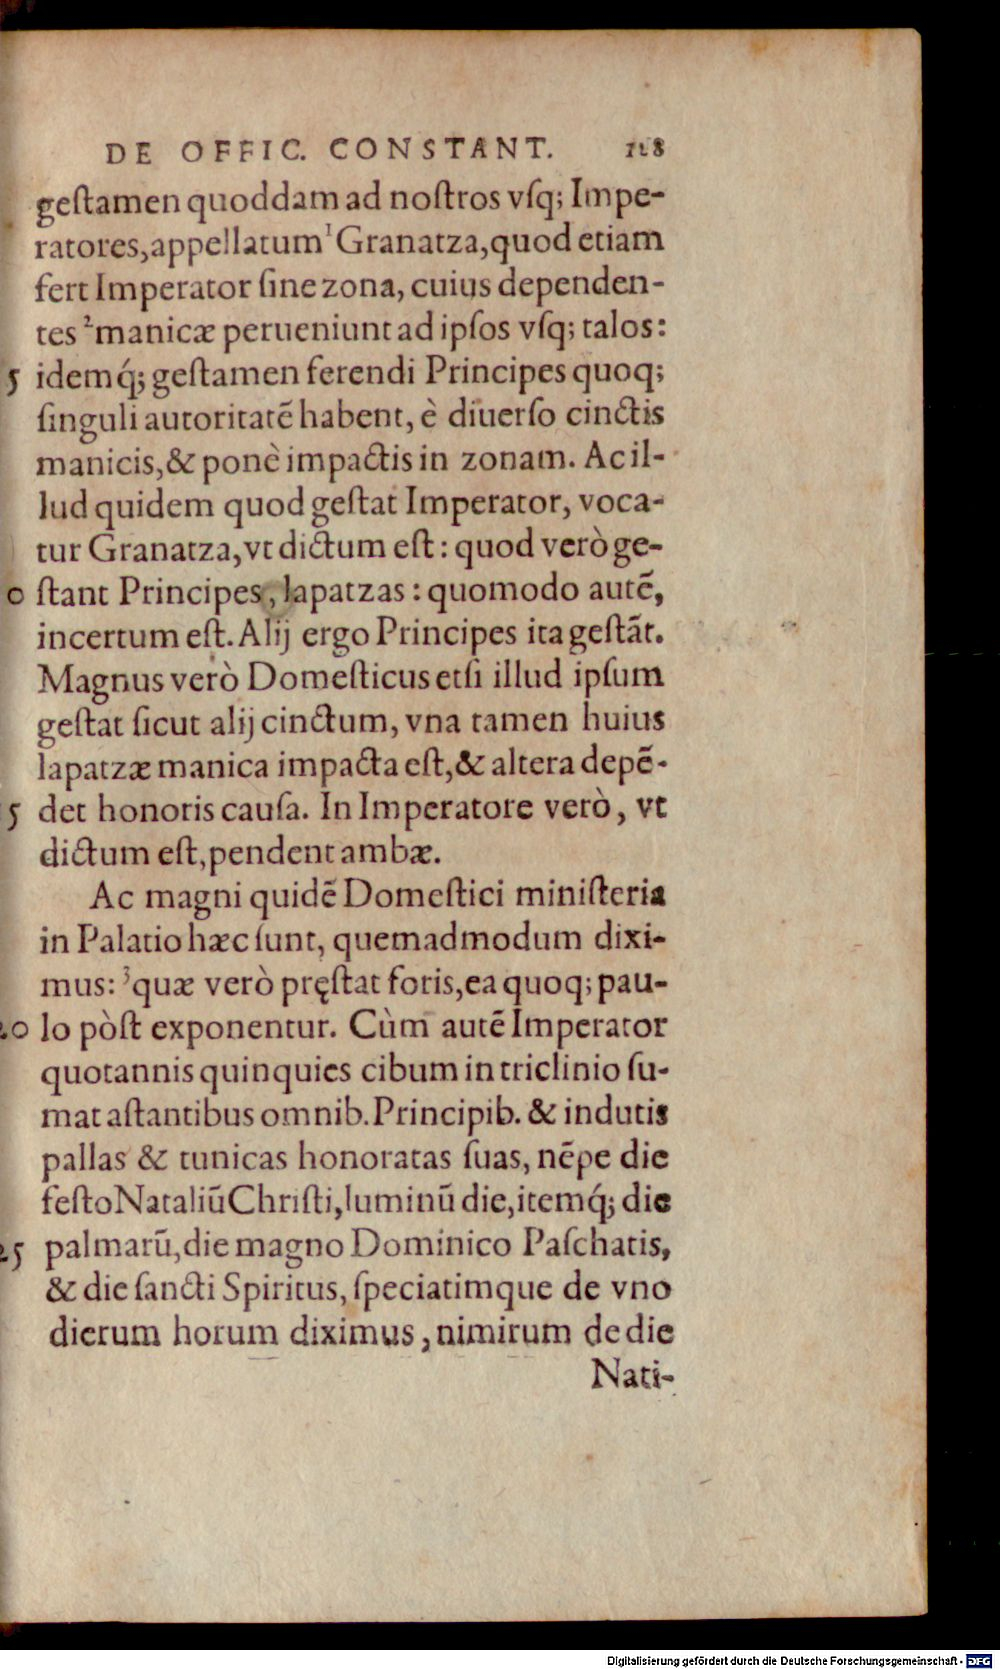 DE OFFIC. CONSTANT. 118
geſtamen quoddam ad noſtros vſq; Impe-
ratores, appellatum ¹Granatza, quod etiam
fert Imperator ſine zona, cuius dependen-
tes ²manicæ perueniunt ad ipſos vſq; talos:
5 idemq́; geſtamen ferendi Principes quoq;
ſinguli autoritatē habent, è diuerſo cinctis
manicis, & ponè impactis in zonam. Ac il-
lud quidem quod geſtat Imperator, voca-
tur Granatza, vt dictum eſt: quod verò ge-
0 ſtant Principes, lapatzas: quomodo autē,
incertum eſt. Alij ergo Principes ita geſtāt.
Magnus verò Domeſticus etſi illud ipſum
geſtat ſicut alij cinctum, vna tamen huius
lapatzæ manica impacta eſt, & altera depē-
5 det honoris cauſa. In Imperatore verò, vt
dictum eſt, pendent ambæ.
Ac magni quidē Domeſtici miniſteria
in Palatio hæc ſunt, quemadmodum dixi-
mus: ³quæ verò pręſtat foris, ea quoq; pau-
20 lo pòſt exponentur. Cùm autē Imperator
quotannis quinquies cibum in triclinio ſu-
mat aſtantibus omnib. Principib. & indutis
pallas & tunicas honoratas ſuas, nēpe die
feſto Nataliū Chriſti, luminū die, itemq́; die
25 palmarū, die magno Dominico Paſchatis,
& die ſancti Spiritus, ſpeciatimque de vno
dierum horum diximus, nimirum de die
Nati-
Digitalisierung gefördert durch die Deutsche Forschungsgemeinschaft - DFG